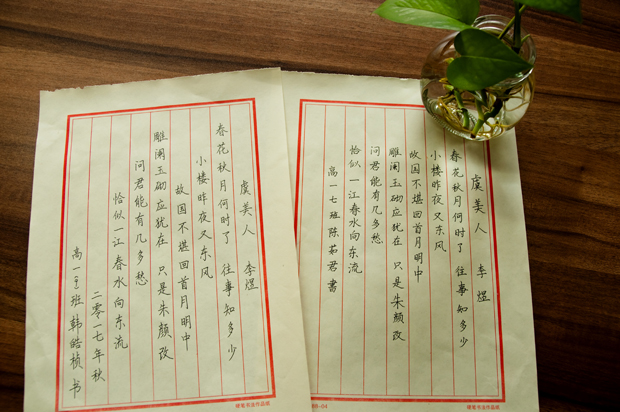 虞美人 李煜
春花秋月何时了 往事知多少
小楼昨夜又东风
故国不堪回首月明中
雕阑玉砌应犹在 只是朱颜改
问君能有几多愁
恰似一江春水向东流
二零一七年秋
高一8班韩皓桢书
硬笔书法作品纸
虞美人 李煜
春花秋月何时了 往事知多少
小楼昨夜又东风
故国不堪回首月明中
雕阑玉砌应犹在 只是朱颜改
问君能有几多愁
恰似一江春水向东流
高一七班陈茹君書
硬笔书法作品纸